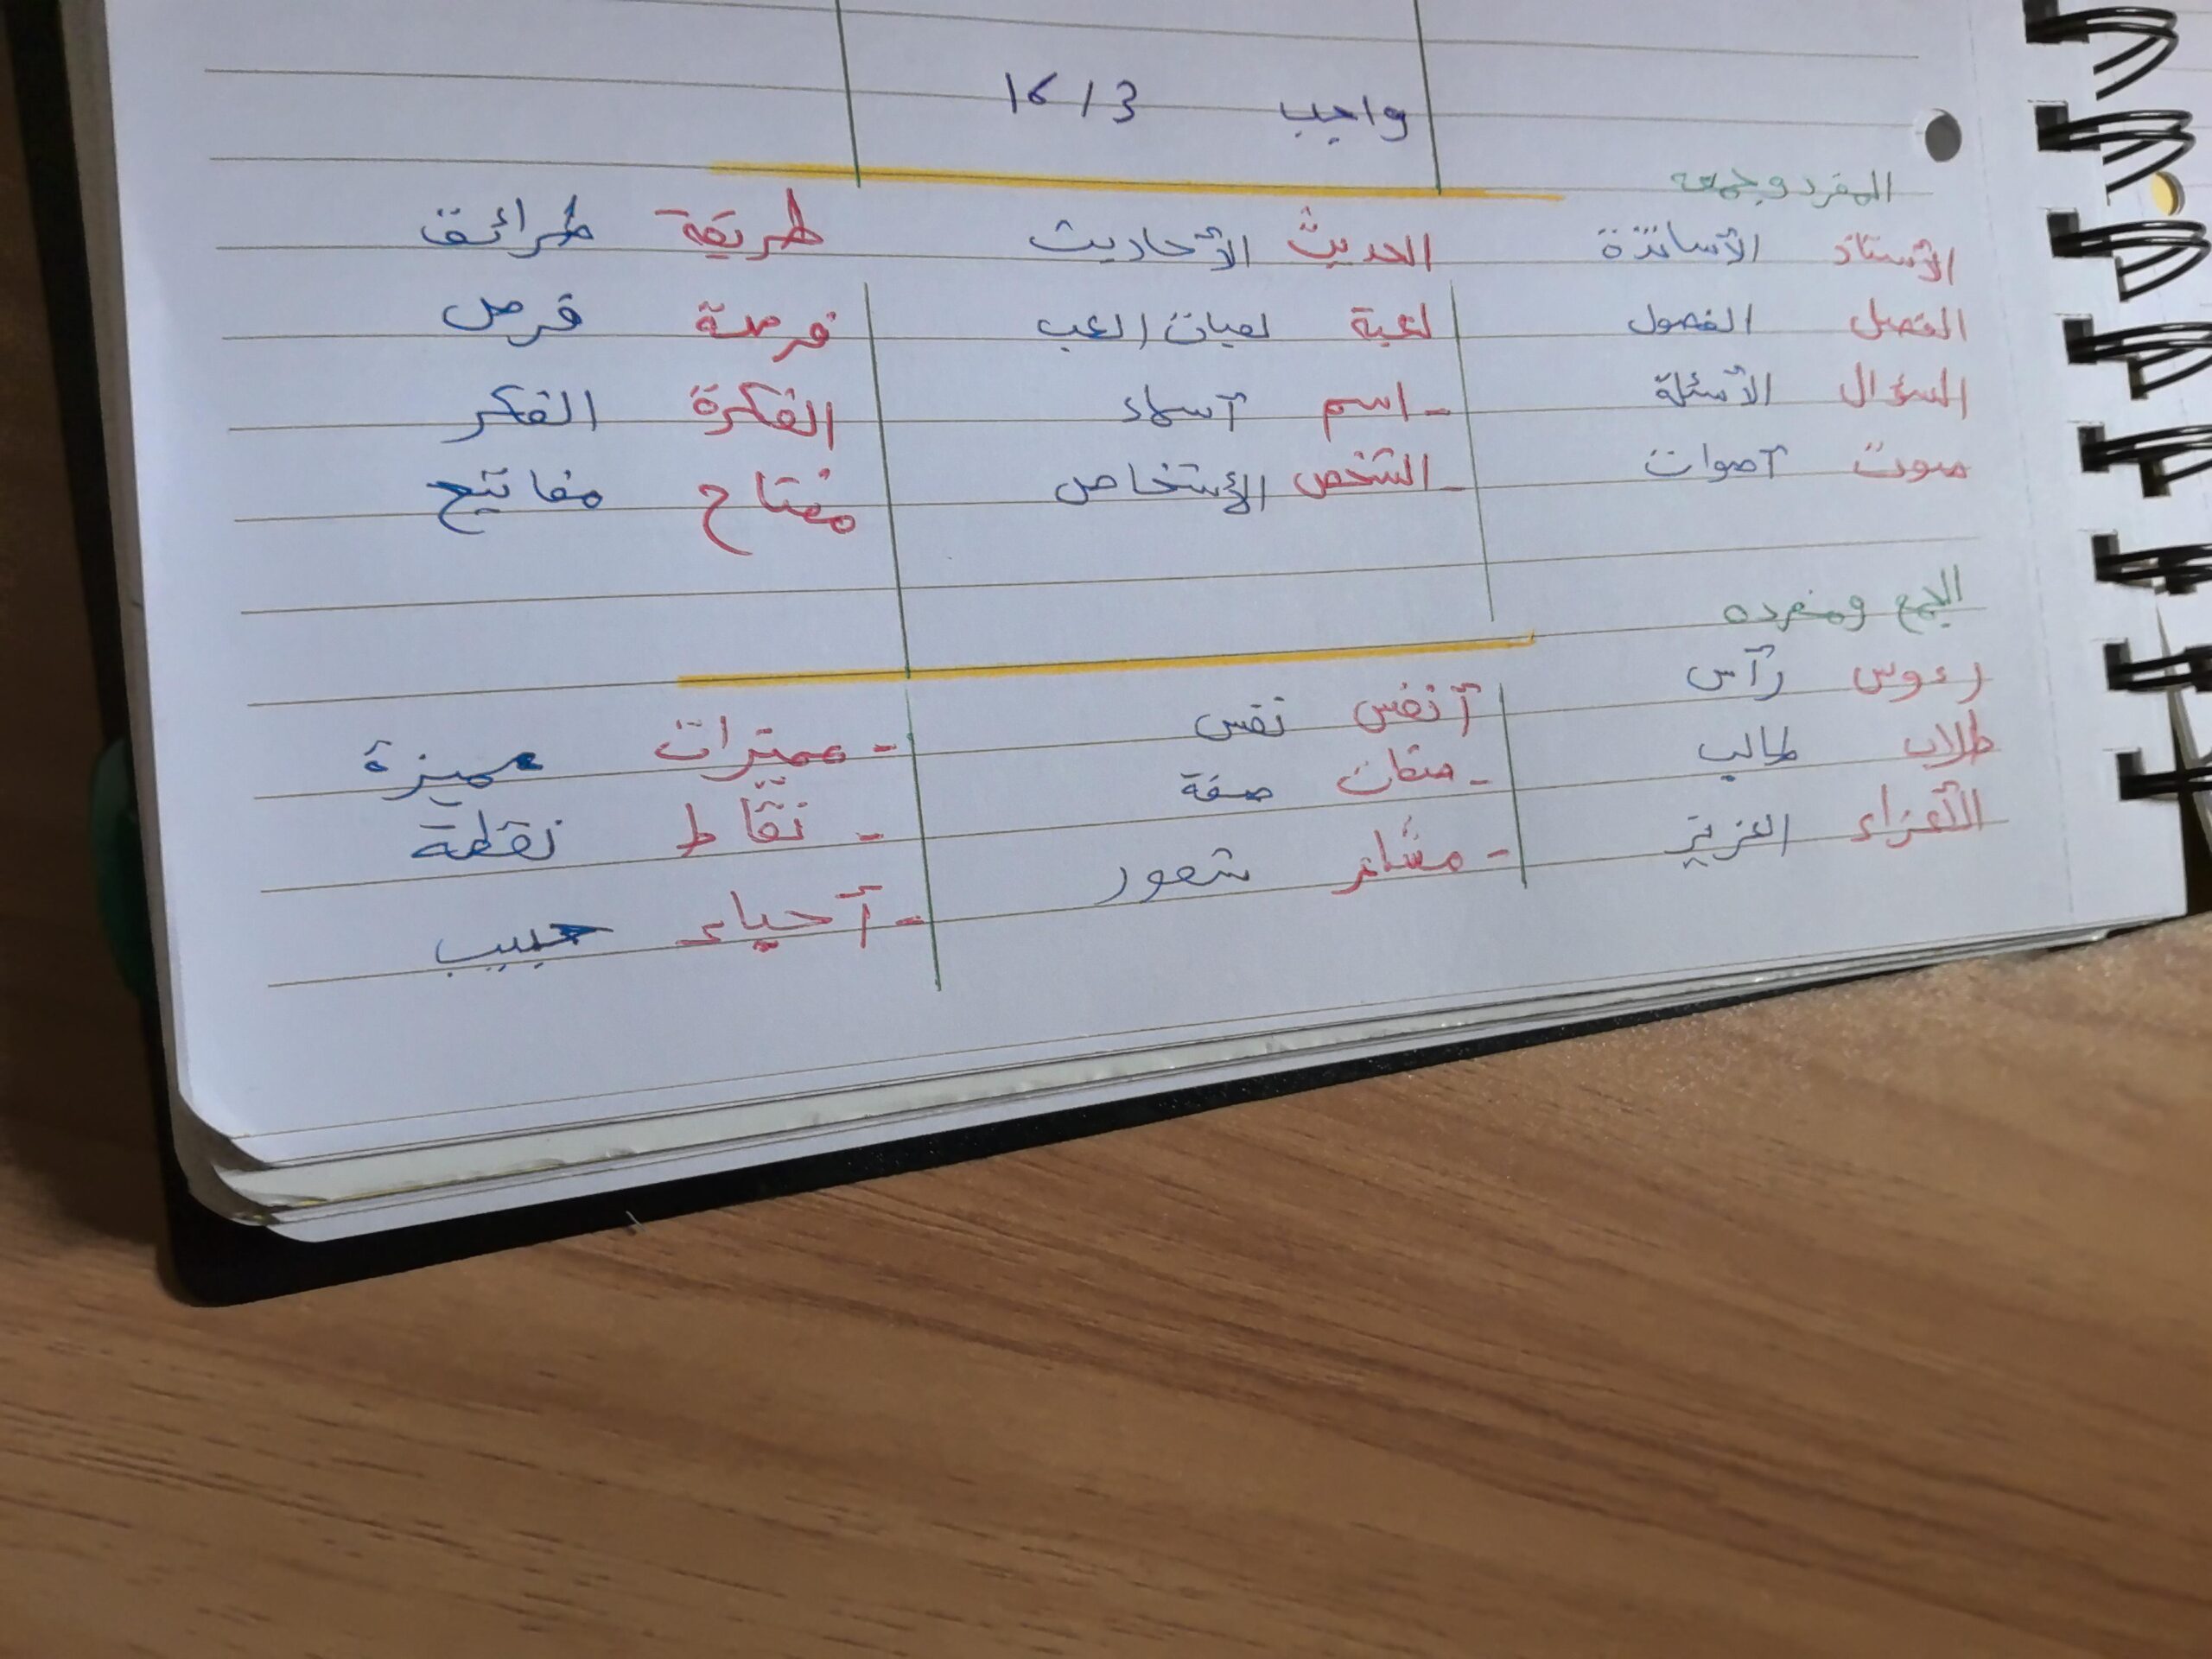 واجب 16/3
المفرد وجمعه
الأستاذ الأساتذة الحديث الأحاديث طريقة طرائق
الفصل الفصول لعبة لعبات/لعب فرصة فرص
السؤال الأسئلة - اسم أسماء الفكرة الفكر
صوت أصوات - الشخص الأشخاص مفتاح مفاتيح
الجمع ومفرده
رءوس رأس أنفس نفس - مميزات مميزة
طلاب طالب - صفات صفة - نقاط نقطة
الأعزاء العزيز - مشاعر شعور - أحباء حبيب